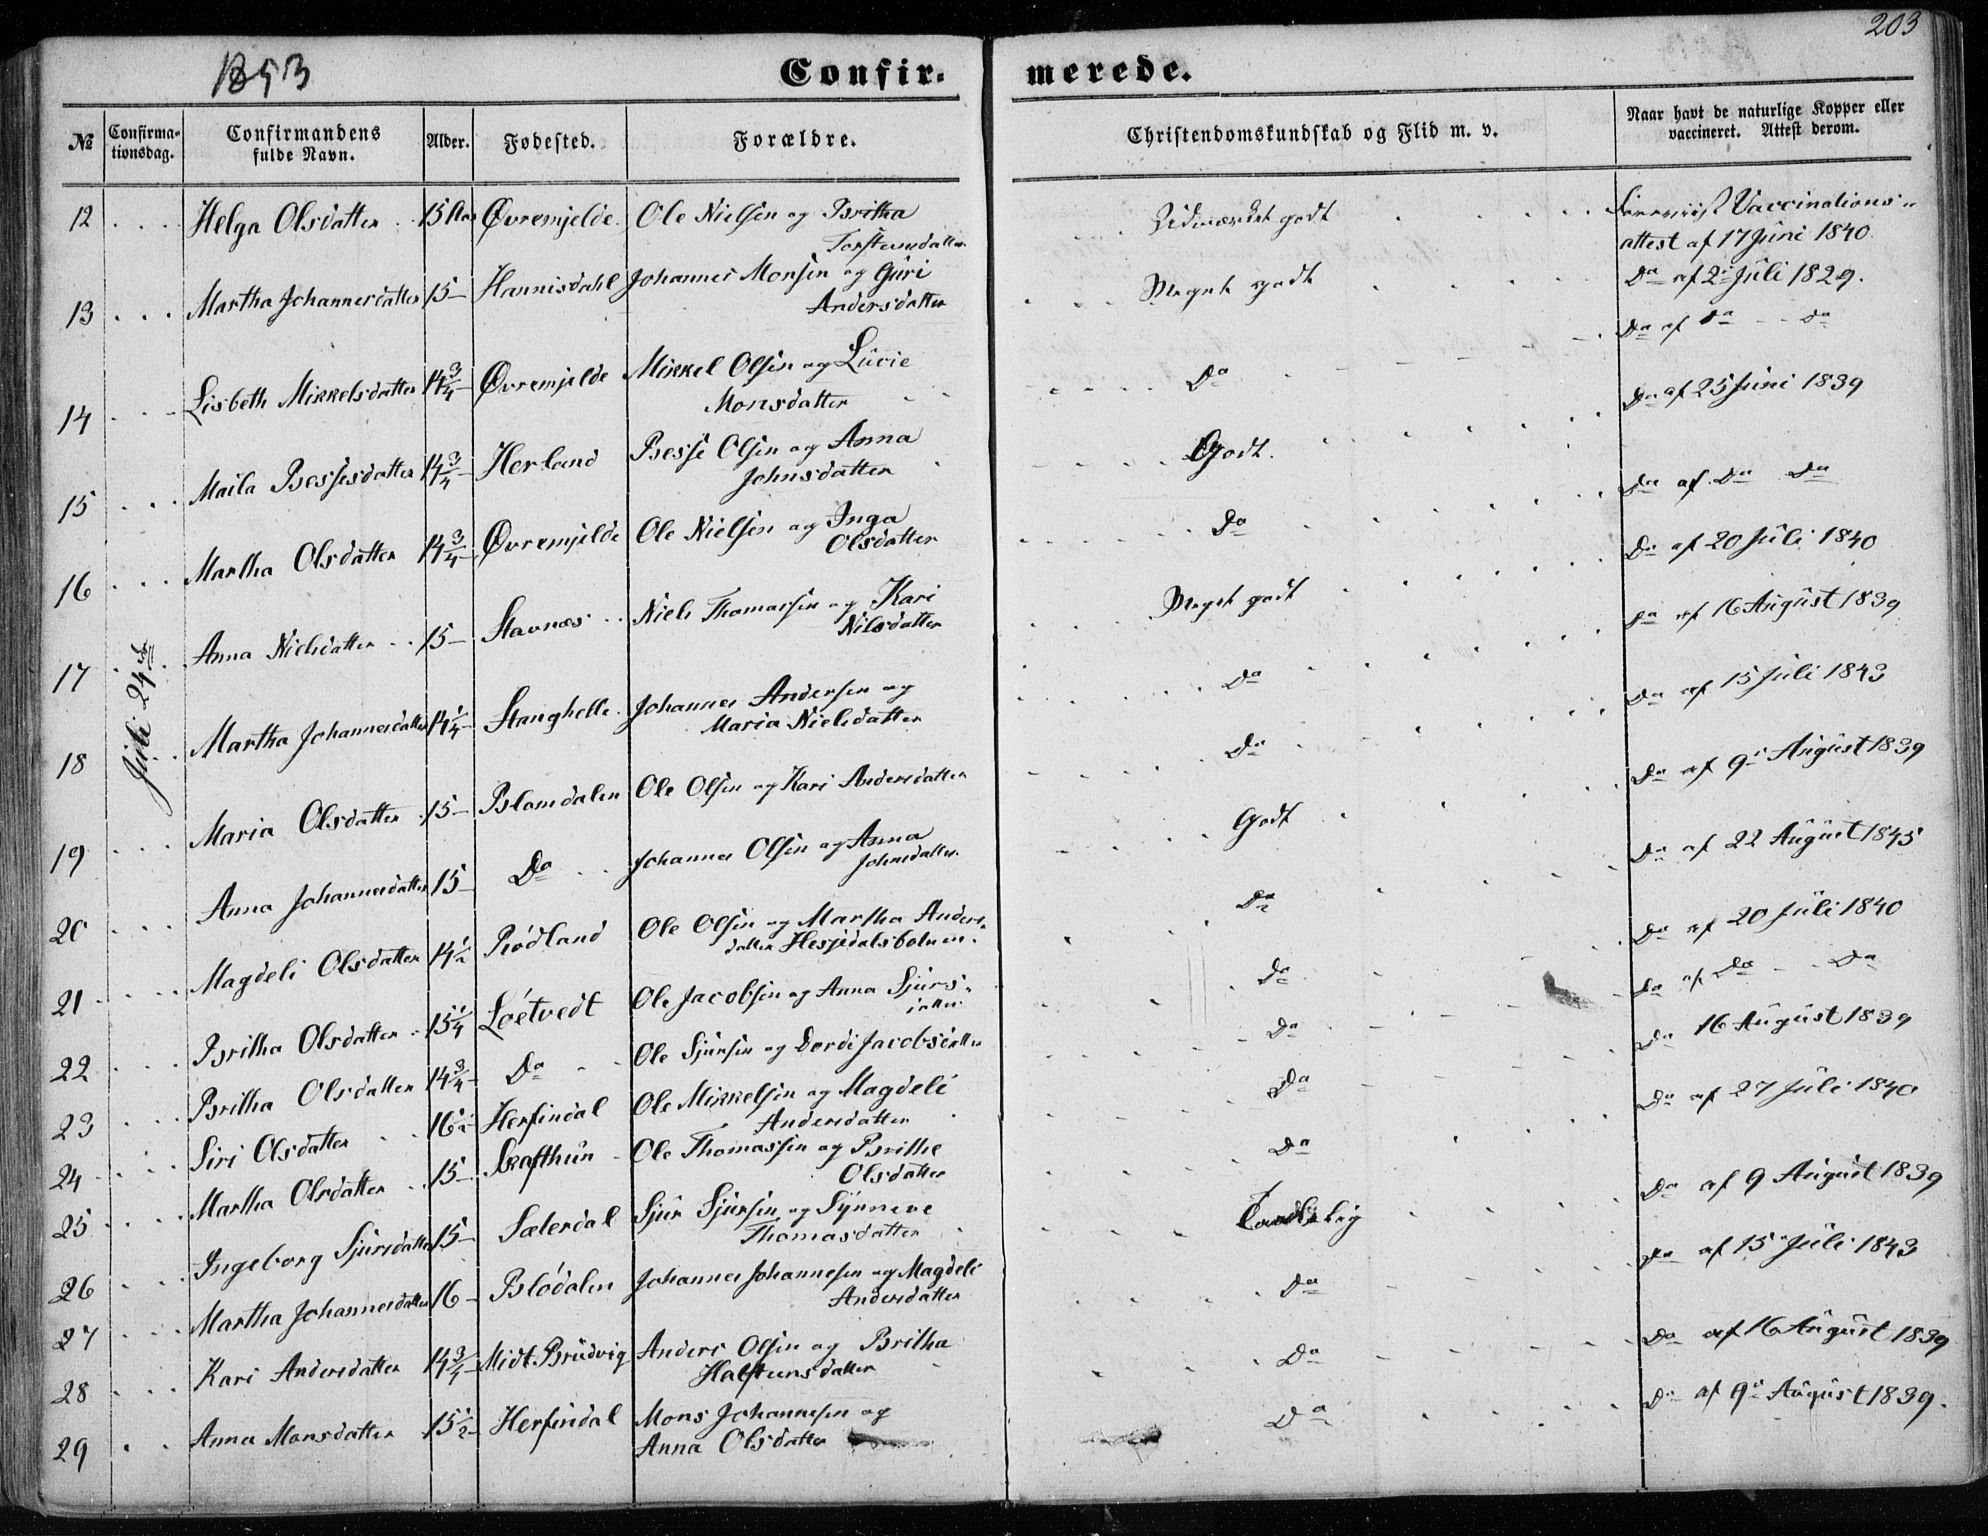 203
1853
Confir- merede.
№ Confirma-tionsdag. Confirmandens fulde Navn. Alder. Fødested. Forældre. Christendomskundskab og Flid m. v. Naar havt de naturlige Kopper eller vaccineret. Attest derom.
Juli 24de
12 Helga Olsdatter 15 Aar Øvremjelde Ole Nielsen og Britha Torstensdatter Udmærket godt Vaccinations-attest af 17 Juni 1840.
13 Martha Johannesdatter 15 Hannisdahl Johannes Monsen og Guri Andersdatter Meget godt Do af 2 Juli 1829.
14 Lisbeth Mikkelsdatter 14 3/4 Øvremjelde Mikkel Olsen og Lucie Monsdatter Do Do af do Do
15 Maila Bessesdatter 14 3/4 Herland Besse Olsen og Anna Johnsdatter Godt. Do af 25 Juni 1839
16 Martha Olsdatter 14 3/4 Øvremjelde Ole Nielsen og Inga Olsdatter Do Do af Do Do
17 Anna Nielsdatter 15 Stavnæs Niels Thomassen og Kari Nilsdatter Meget godt Do af 20 Juli 1840
18 Martha Johannesdatter 14 1/4 Stanghelle Johannes Andersen og Maria Nielsdatter Do Do af 16 August 1839
19 Maria Olsdatter 15 Blomdalen Ole Olsen og Kari Andersdatter Do Do af 15 Juli 1843
20 Anna Johannesdatter 15 Do Johannes Olsen og Anna Johnsdatter Godt Do af 9 August 1839
21 Magdeli Olsdatter 14 1/2 Rødland Ole Olsen og Martha Andersdatter Hesjedalsbotnen Do Do af 22 August 1845
22 Britha Olsdatter 15 1/4 Løetvedt Ole Jacobsen og Anna Sjursdatter Do Do af 20 Juli 1840
23 Britha Olsdatter 14 3/4 Do Ole Sjursen og Dordi Jacobsdatter Do Do af Do Do
24 Siri Olsdatter 16 1/2 Herfindal Ole Mikkelsen og Magdeli Andersdatter Do Do 16 August 1839
25 Martha Olsdatter 15 Skafthun Ole Thomassen og Brithe Olsdatter Do Do af 27 Juli 1840
26 Ingeborg Sjursdatter 15 Sælerdal Sjur Sjursen og Synneve Thomasdatter Do af 9 August 1839
27 Martha Johannesdatter 16 Blødalen Johannes Johannesen og Magdeli Andersdatter Do Do af 15 Juli 1843
28 Kari Andersdatter 14 3/4 Midt Brudvig Anders Olsen og Britha Halstensdatter Do Do af 16 August 1839
29 Anna Monsdatter 15 1/2 Herfindal Mons Johannesen og Anna Olsdatter Do Do af 9 August 1839.